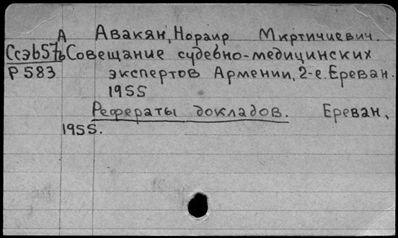 А Авакян, Нораир Мкртичиевич.
Ссэb57ь Совещание судебно-медицинских
Р583 экспертов Армении, 2-е. Ереван.
1955
Рефераты докладов. Ереван,
1955.